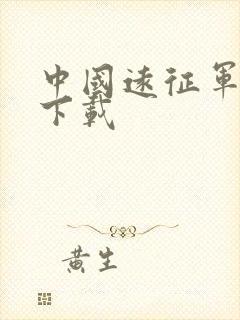 中國遠征軍
下載
黃生